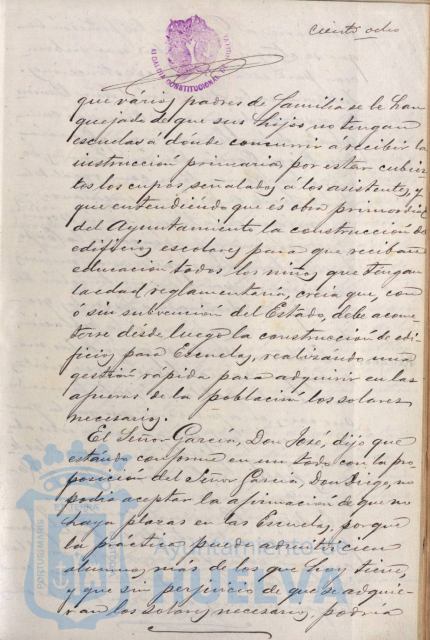 ciento ocho
ALCALDIA CONSTITUCIONAL DE HUELVA
que varios padres de familia se le han
quejado de que sus hijos no tengan
escuelas á dónde concurrir a recibir la
instrucción primaria, por estar cubier
tos los cupos señalados a los asistentes, y
que entendiéndo que és obra primordial
del Ayuntamiento la construcción de
edificios escolares para que reciban
educación todos los niños que tengan
la edad reglamentaria, creia que, con
ó sin subvención del Estado, debe acome
terse désde luego la construcción de edi
ficios para Escuelas, realizando una
gestión rápida para adquirir en las
afueras de la población los solares
necesarios.
El Señor García, Don José, dijo que
estándo conforme en un todo con la pro
posición del Señor García, Don Diego, no
podia aceptar la afirmación de que no
haya plazas en las Escuelas, porque
la práctica puede asistir cien
alumnos más de los que hoy tiene,
y que sin perjuicio de que se adquie-
ran los solares necesarios, podría
PORTUS MARIS
ET TERRÆ
CUSTODIA
Ayuntamiento de
HUELVA